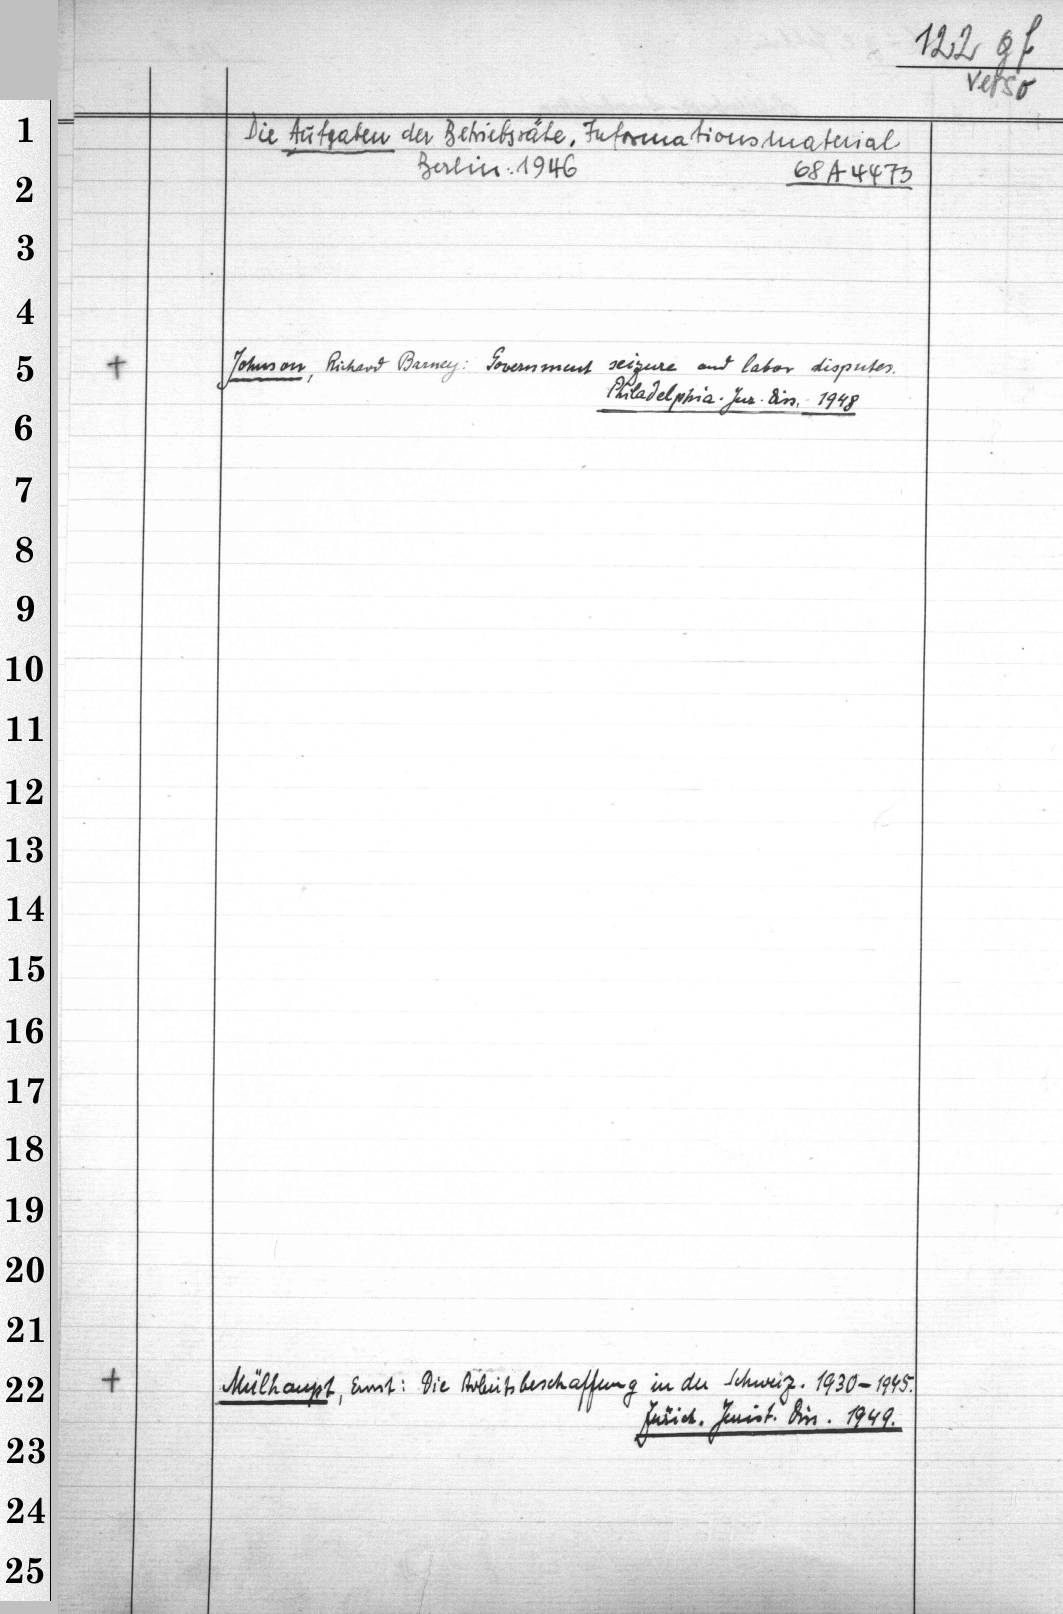 122 gf
verso
1 Die Aufgaben der Betriebsräte. Informationsmaterial
2 Berlin. 1946 68 A 4473
3
4
5 + Johnson, Richard Barney: Government seizure and labor disputes.
Philadelphia. Jur. Diss. 1948
6
7
8
9
10
11
12
13
14
15
16
17
18
19
20
21
22 + Mülhaupt, Ernst: Die Arbeitsbeschaffung in der Schweiz. 1930-1945.
Zürich. Jurist. Diss. 1949.
23
24
25